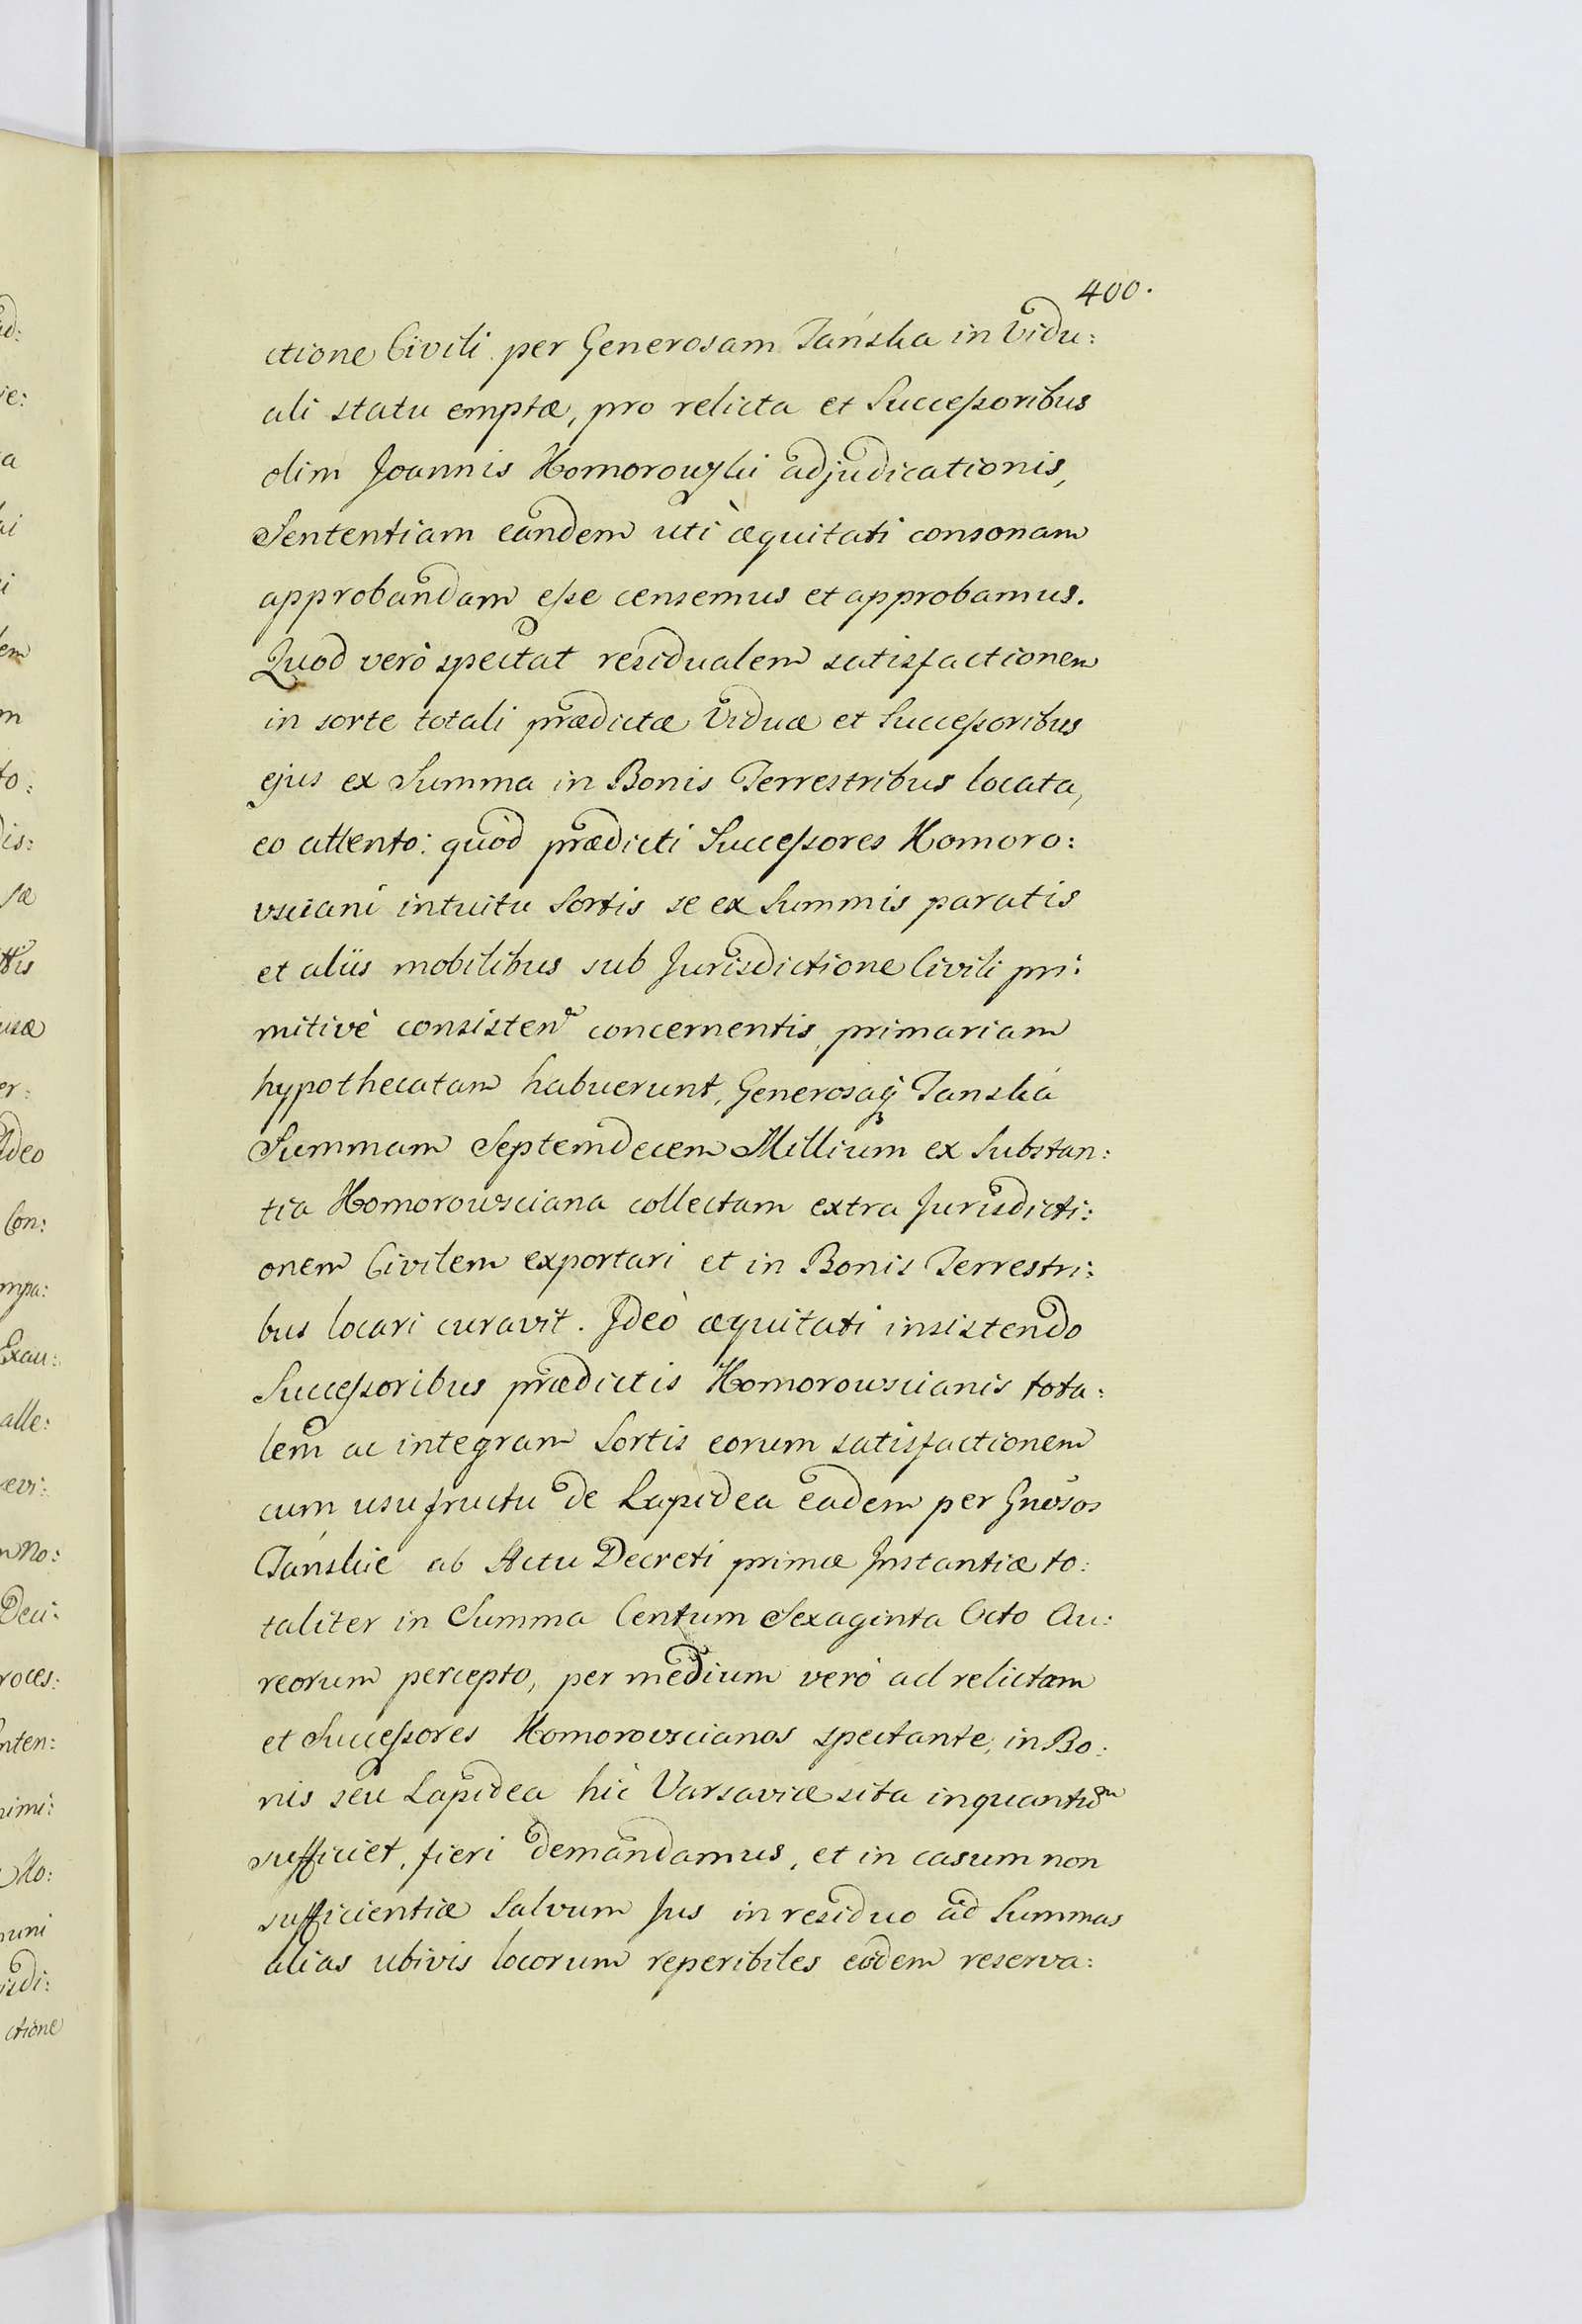 400.
ctione Civili per Generosam Tańska in Vidu:
ali statu emptæ, pro relicta et Successoribus
olim Joannis Komorowski adjudicationis,
Sententiam eandem uti æquitati consonam
approbandam esse censemus et approbamus.
Quod verò spectat residualem satisfactionem
in sorte totali prædictæ Viduæ et Successoribus
ejus ex Summa in Bonis Terrestribus locata,
eo attento: quòd prædicti Successores Komoro:
vsciani intuitu Sortis se ex Summis paratis
et aliis mobilibus sub Jurisdictione Civili pri:
mitivè consisten concernentis, primariam
hypothecatam habuerunt, Generosaq Tanska
Summam Septemdecem Millium ex Substan:
tia Komorowsciana collectam extra Jurisdicti:
onem Civilem exportari et in Bonis Terrestri:
bus locari curavit. Ideò æquitati insistendo
Successoribus prædictis Komorowscianis tota:
lem ac integram Sortis eorum satisfactionem
cum usufructu de Lapidea eadem per Gnosos
Tańskie ab Actu Decreti primæ Instantiæ to:
taliter in Summa Centum Sexaginta Octo Au:
reorum percepto, per medium verò ad relictam
et Successores Komorovscianos spectante, in Bo:
nis seu Lapidea hic Varsaviæ sita inquantum
sufficiet, fieri demandamus, et in casum non
sufficientiæ Salvum Jus in residuo ad Summas
alias ubivis locorum reperibiles eodem reserva: